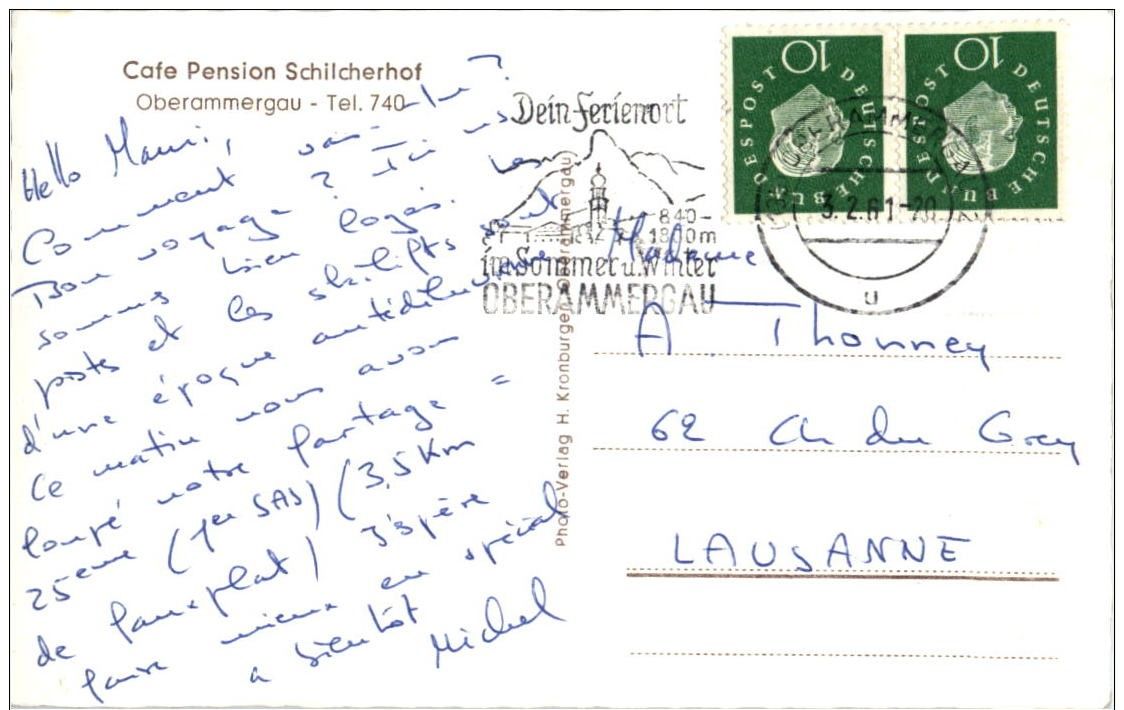 Cafe Pension Schilcherhof
Oberammergau - Tel. 740
Hello Mami,
Comment vas-tu ?
Bon voyage ? Ici nous
sommes bien logés. Les
pistes et les skilifts sont
d'une époque antédiluvienne
Ce matin nous avons
loupé notre fartage =
25ème (1er SAS) (3,5 Km
de faux plat) J'espère
faire mieux en spécial
a bientôt
Michel
Photo-Verlag H. Kronburger, Oberammergau
Dein Ferienort
840-
1800m
im Sommer u. Winter
OBERAMMERGAU
10
DEUTSCHE BUNDESPOST
10
DEUTSCHE BUNDESPOST
OBERAMMERGAU
3.2.61-20
u
Madame
A. Thonney
62 Ch du Grey
LAUSANNE